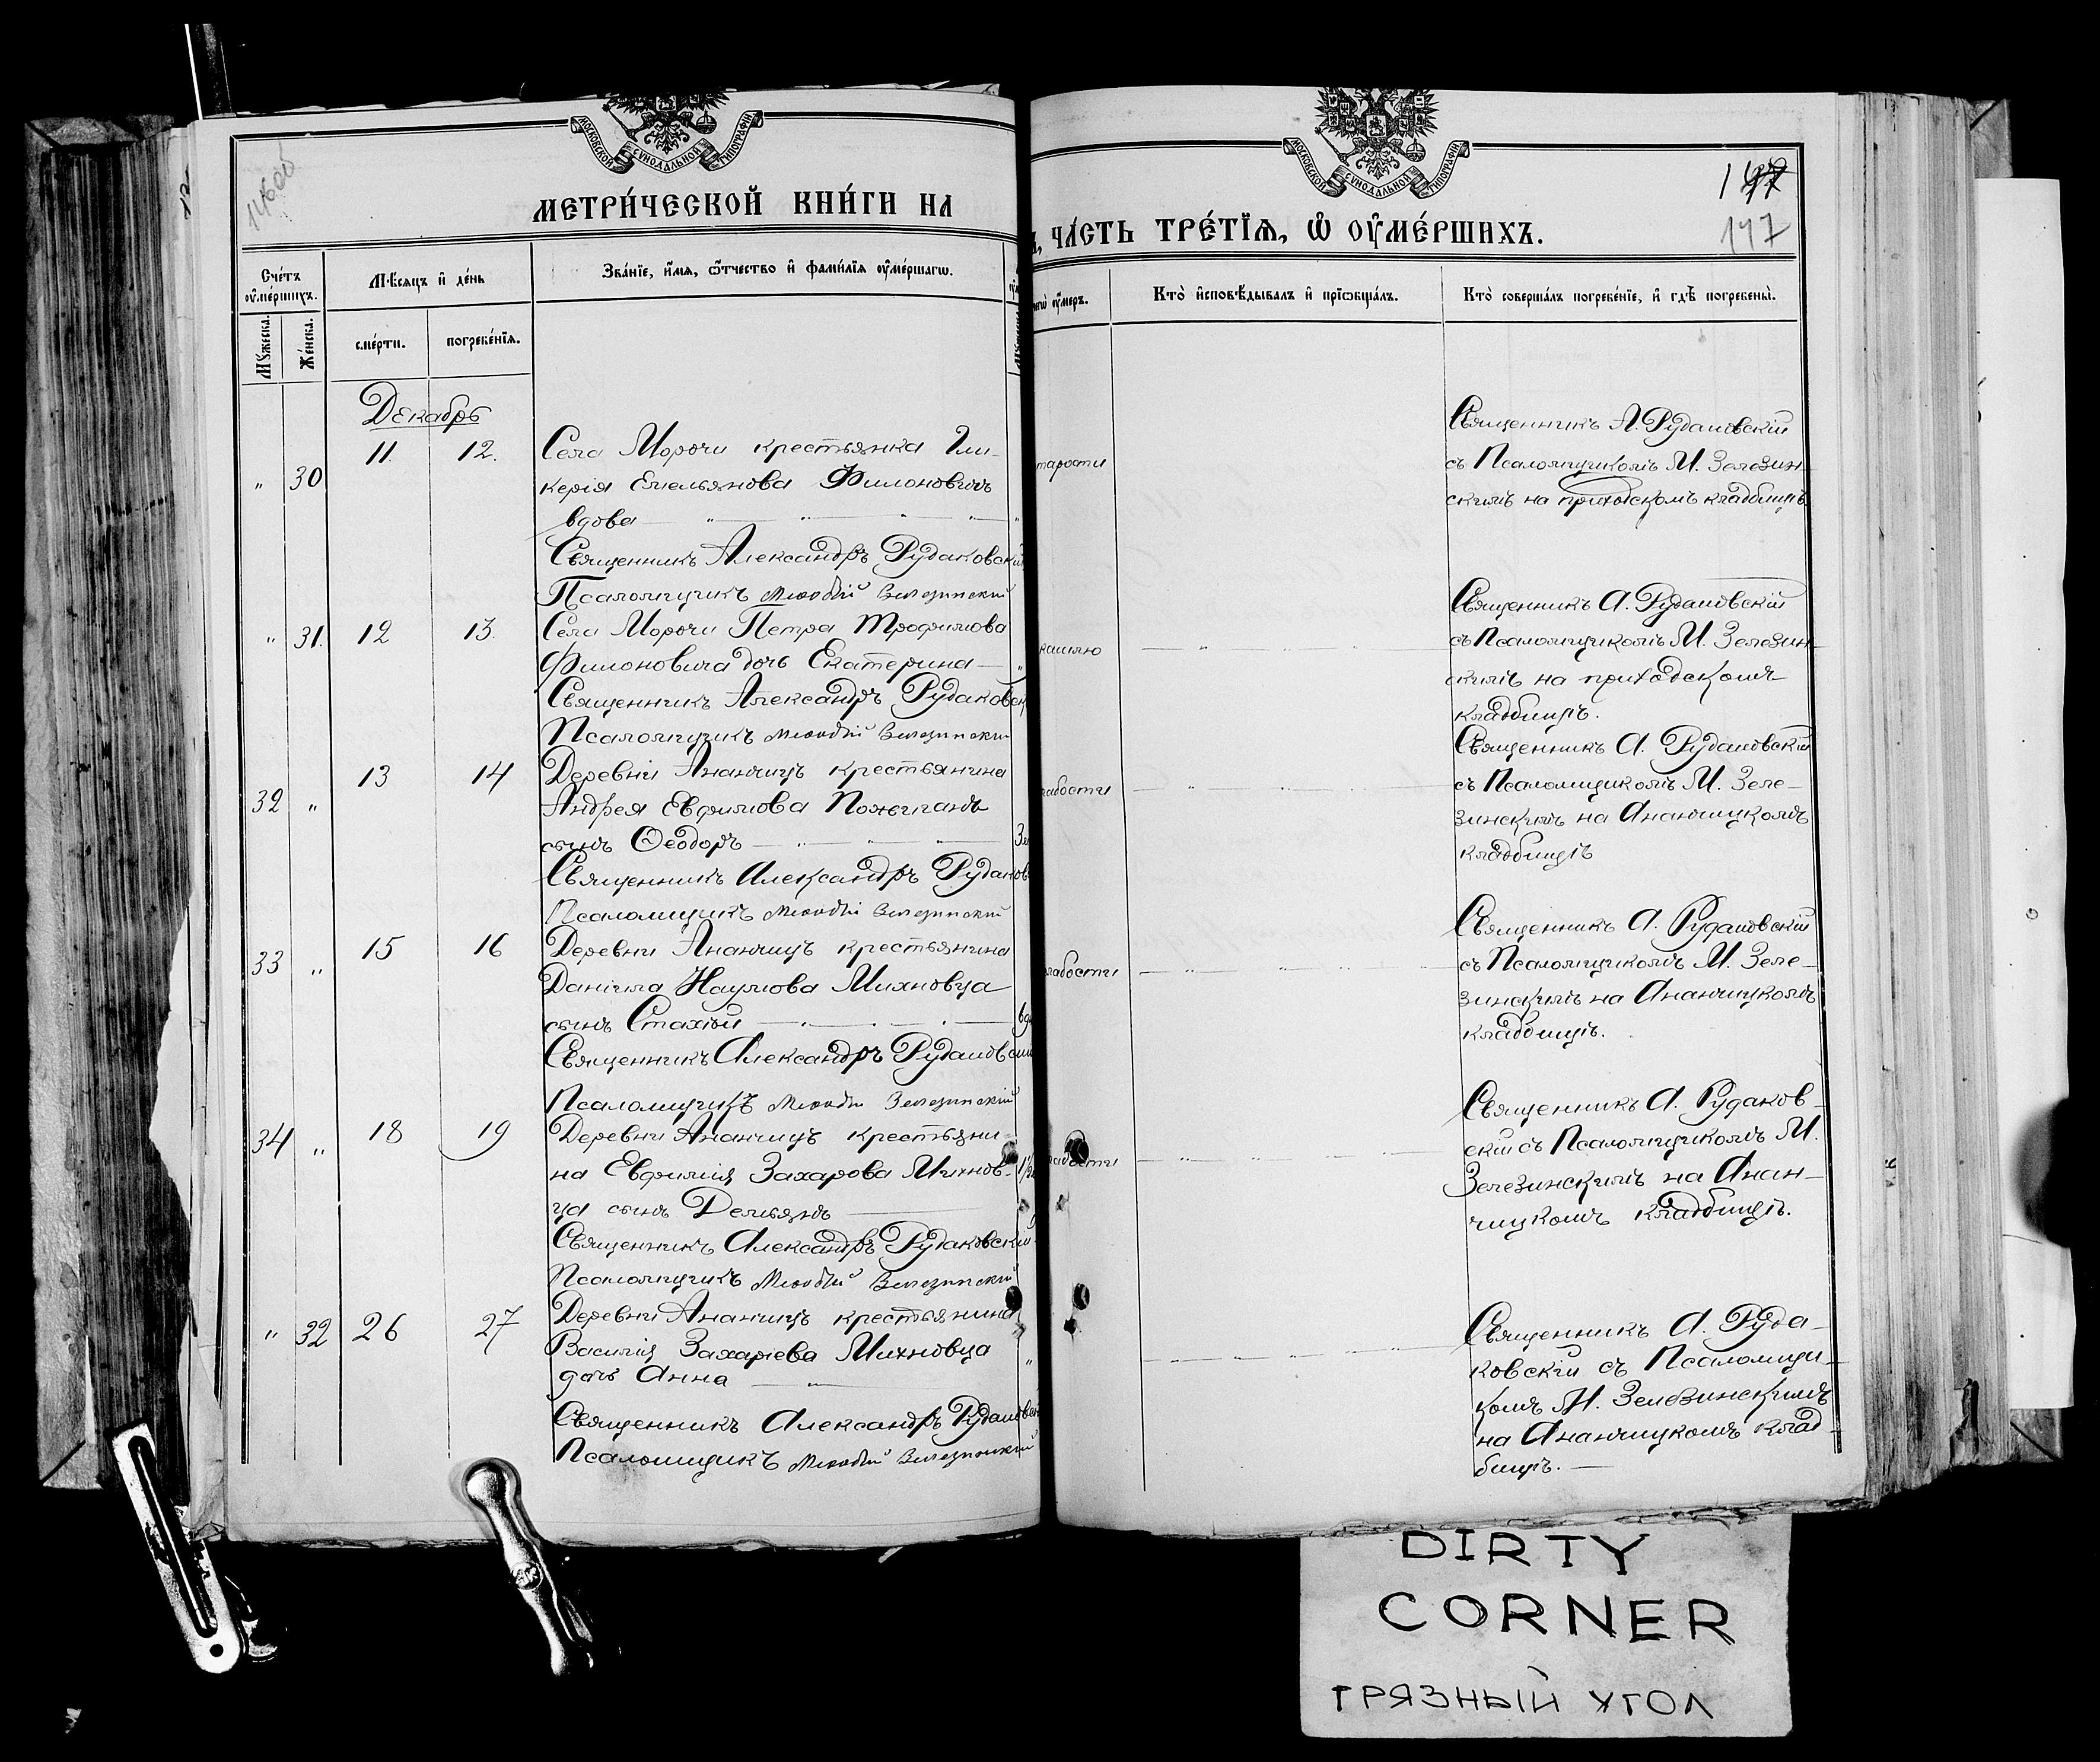 МОСКОВСКОЙ СѴНОДАЛЬНОЙ ТИПОГРАФІИ
МЕТРИ́ЧЕСКОЙ КНИ́ГИ НА
Сче́тъ ᲂу҆ме́ршихъ.
Мѣ́сяцъ и҆ де́нь
Зва́нїе, и҆́мѧ, ѻ҆́тчество и҆ фами́лїѧ ᲂу҆ме́ршагѡ.
Мꙋ́жеска.
Же́нска.
сме́рти.
погребе́нїѧ.
Декабрь
„ 30 11. 12. Села Морочи крестьянка Гли-
керія Емельянова Филоновичъ
вдова
Священникъ Александръ Рудаковскій
Псаломщикъ Меѳодій Зелезинскій
„ 31. 12 13. Села Морочи Петра Трофимова
Филоновича дочь Екатерина
Священникъ Александръ Рудаковск
Псаломщикъ Меѳодій Зелезинскій
32 „ 13 14 Деревни Ананчицъ крестьянина
Андрея Евфимова
сынъ Ѳеодоръ
Священникъ Александръ Рудаков
Псаломщикъ Меѳодій Зелезинскій
33 „ 15 16 Деревни Ананчицъ крестьянина
Даніила Наумова Михновца
сынъ Стахій
Священникъ Александръ Рудаковскі
Псаломщикъ Меѳодій Зелезинскій
34 „ 18 19 Деревни Ананчицъ крестьяни-
на Евфимія Захарова Михнов-
ца сынъ Демьянъ
Священникъ Александръ Рудаковскій
Псаломщикъ Меѳодій Зелезинскій
„ 32 26 27 Деревни Ананчицъ крестьянина
Василія Захаріева Михновца
дочь Анна
Священникъ Александръ Рудаковск
Псаломщикъ Меѳодій Зелезинскій
МОСКОВСКОЙ СѴНОДАЛЬНОЙ ТИПОГРАФІИ
147
ЧА́СТЬ ТРЕ́ТЇѦ, Ѡ҆ ᲂУ҆МЕ́РШИХЪ.
ᲂу҆́меръ.
Кто̀ и҆сповѣ́дывалъ и҆ прїѡбща́лъ.
Кто̀ соверша́лъ погребе́нїе, и҆ гдѣ̀ погребены̀.
тарости
Священникъ А. Рудаковскій
съ Псаломщикомъ М. Зелезин-
скимъ на приходскомъ кладбищѣ
кашлю
Священникъ А. Рудаковскій
съ Псаломщикомъ М. Зелезин-
скимъ на приходскомъ
кладбищѣ.
лабости
Священникъ А. Рудаковскій
съ Псаломщикомъ М. Зеле-
зинскимъ на Ананчицкомъ
кладбищѣ
лабости
Священникъ А. Рудаковскій
съ Псаломщикомъ М. Зеле-
зинскимъ на Ананчицкомъ
кладбищѣ.
лабости
Священникъ А. Рудаков-
скій съ Псаломщикомъ М.
Зелезинскимъ на Анан-
чицкомъ кладбищѣ.
Священникъ А. Руда-
ковскій съ Псаломщи-
комъ М. Зелезинскимъ
на Ананчицкомъ клад-
бищѣ.
DIRTY
CORNER
ГРЯЗНЫЙ УГОЛ